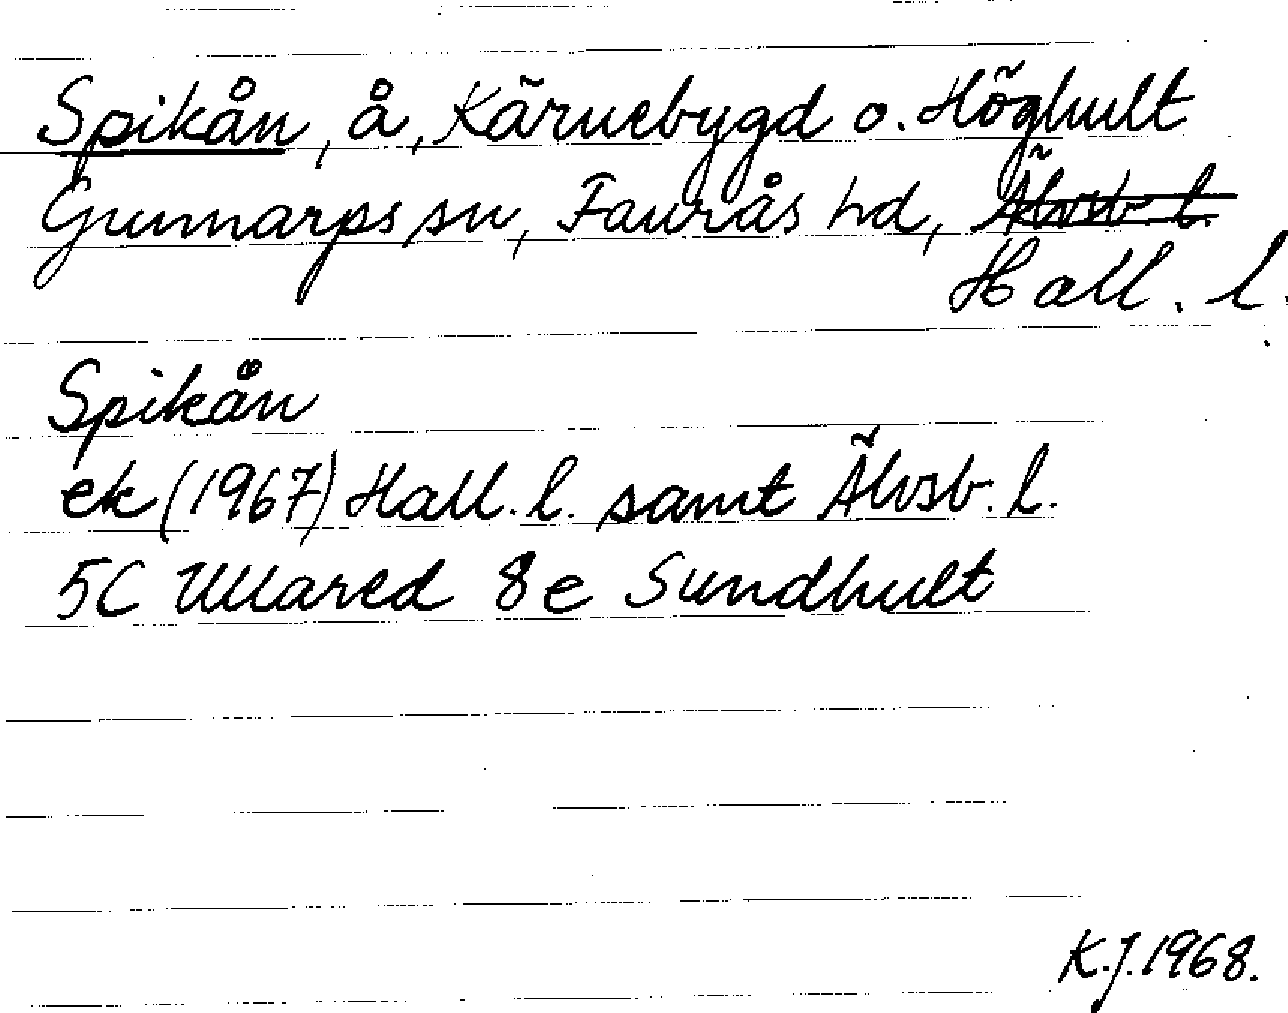 Spikån, å, Kärnebygd o. Höghult
Gunnarps sn, Faurås hd, Älvsb. l.
Hall. l.
Spikån
ek (1967) Hall. l. samt Älvsb. l.
5C Ullared 8e Sundhult
K.J. 1968.